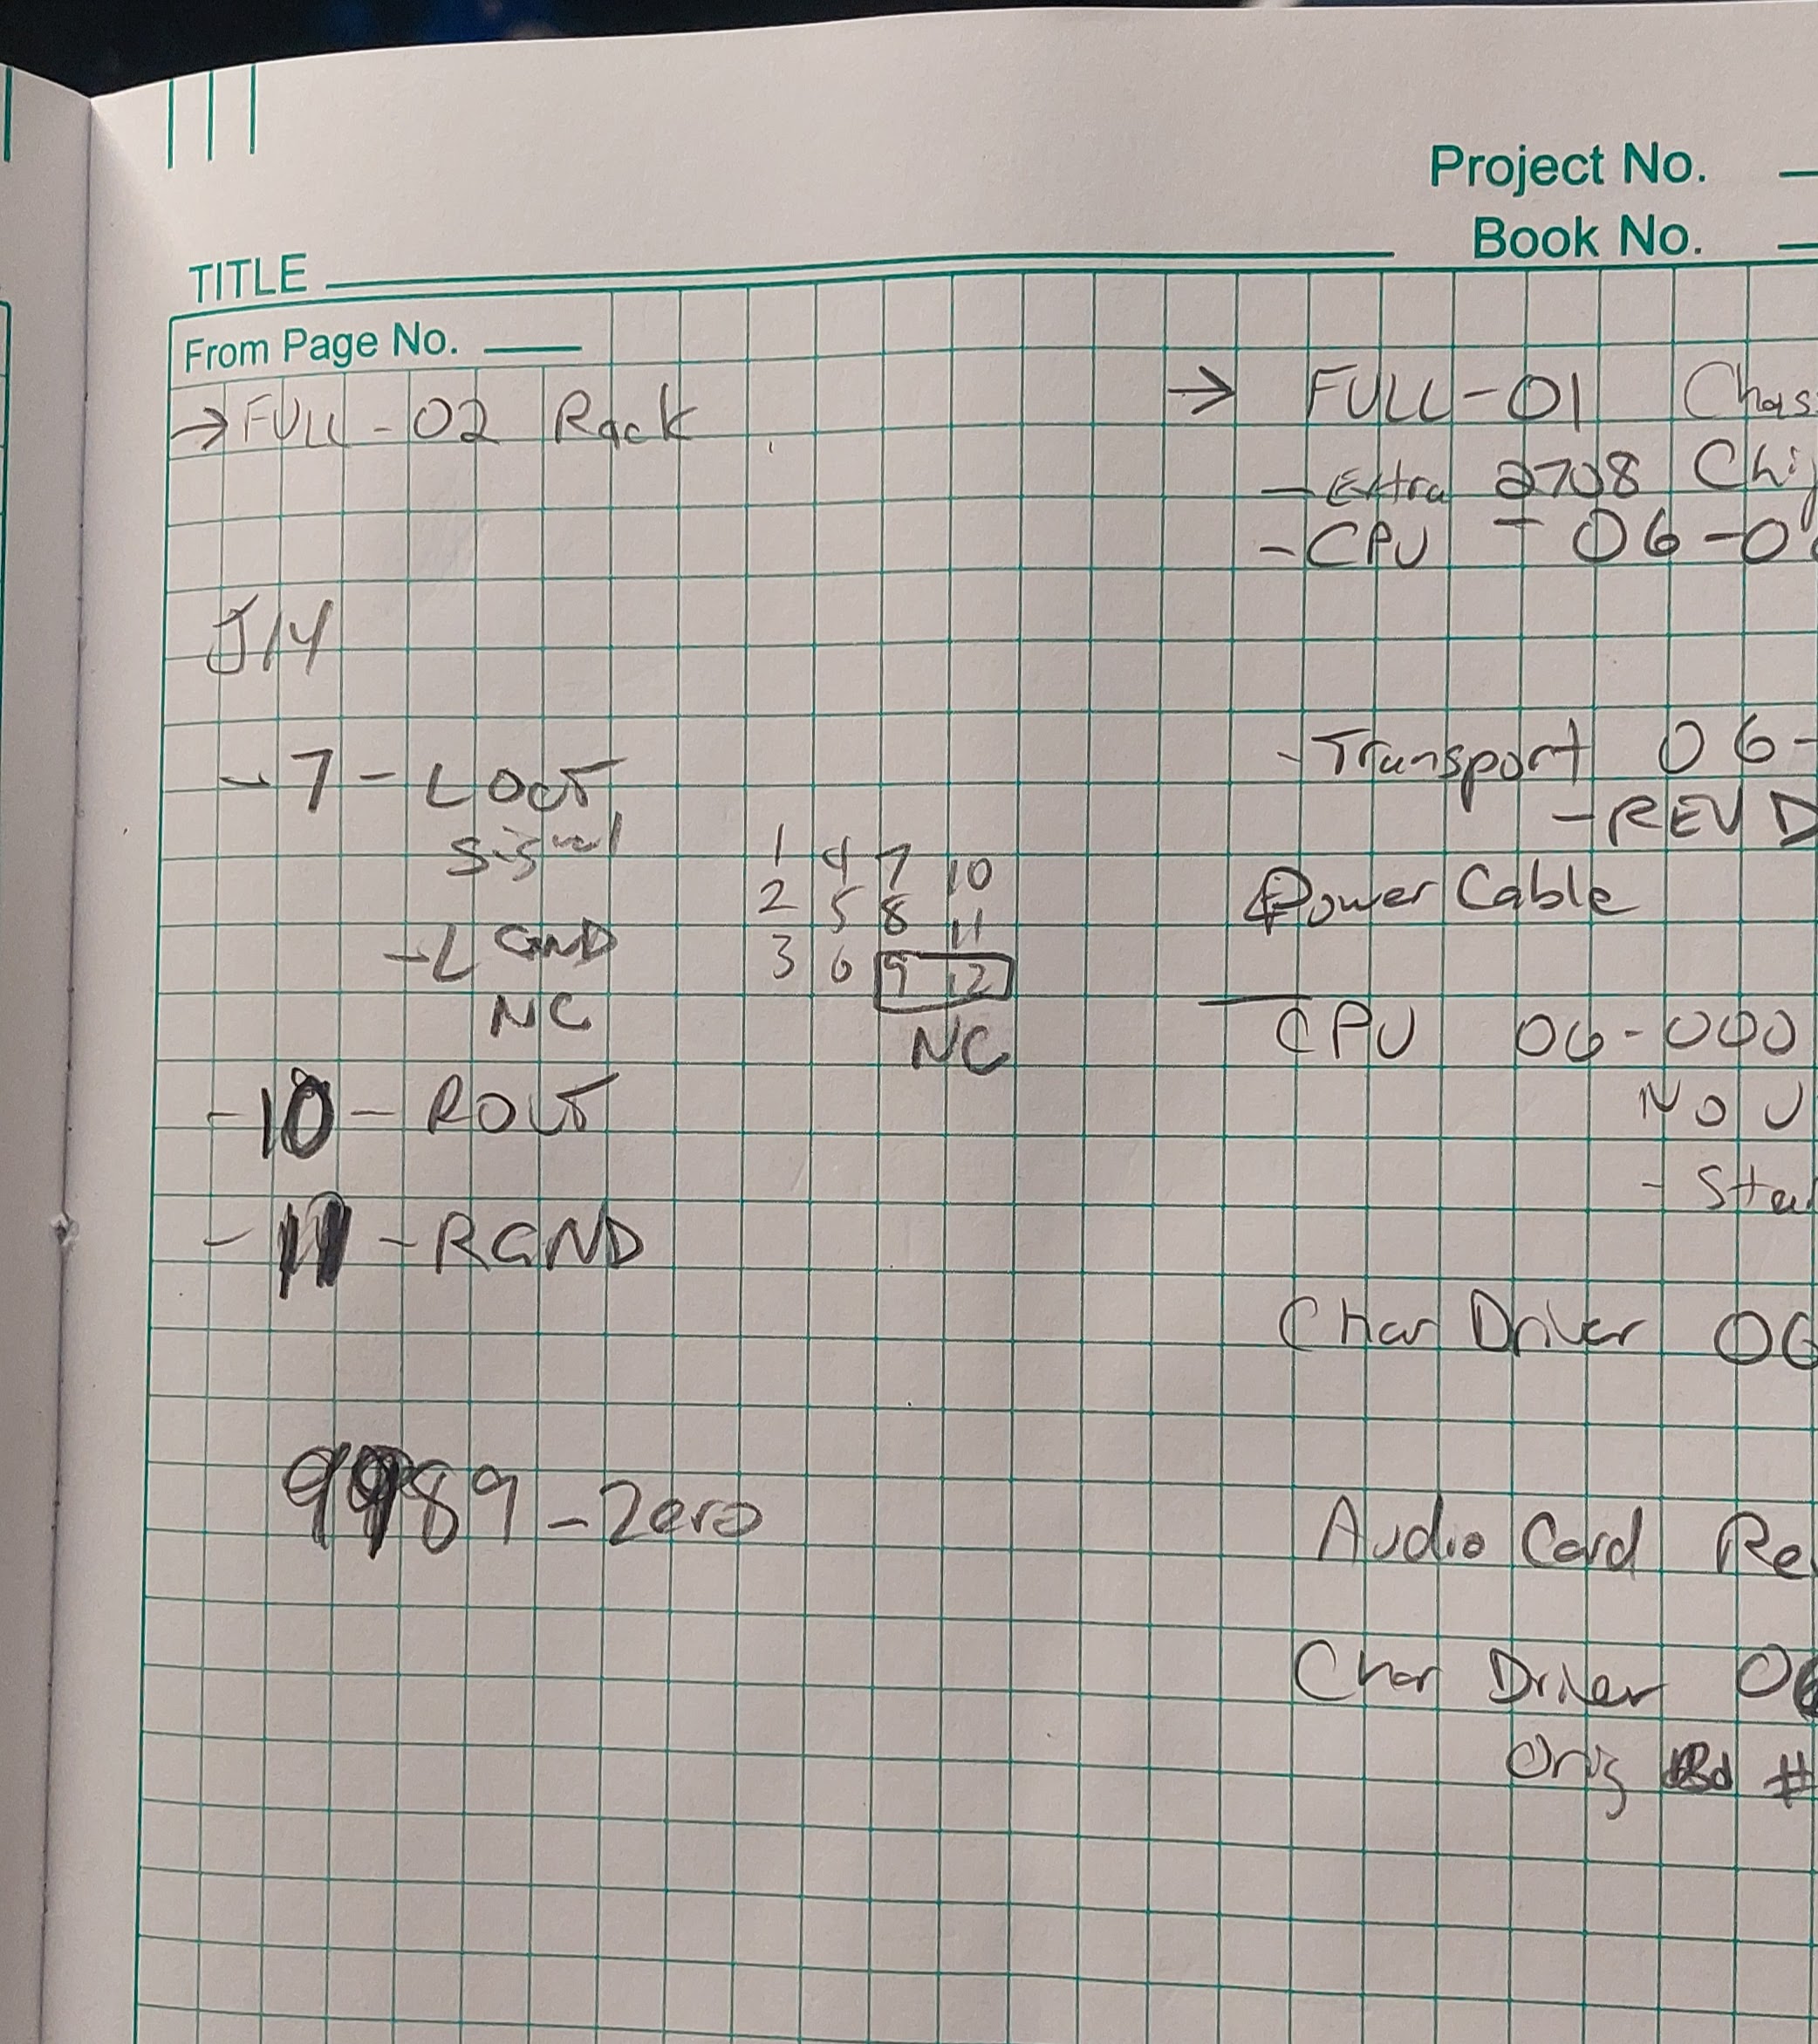 Project No.
Book No.
TITLE
From Page No.
→ FULL - 02 Rack
J14
- 7 - L OUT
signal
- L GND
NC
- 10 - ROUT
- 11 - RGND
1 4 7 10
2 5 8 11
3 6 9 12
NC
9989 - Zero
→ FULL - 01
- Extra 2708
- CPU - 06-0
- Transport 06-
- REV D
Power Cable
CPU 06-000
NO
-
Char Driver 06
Audio Card
Char Driver
Orig Bd #